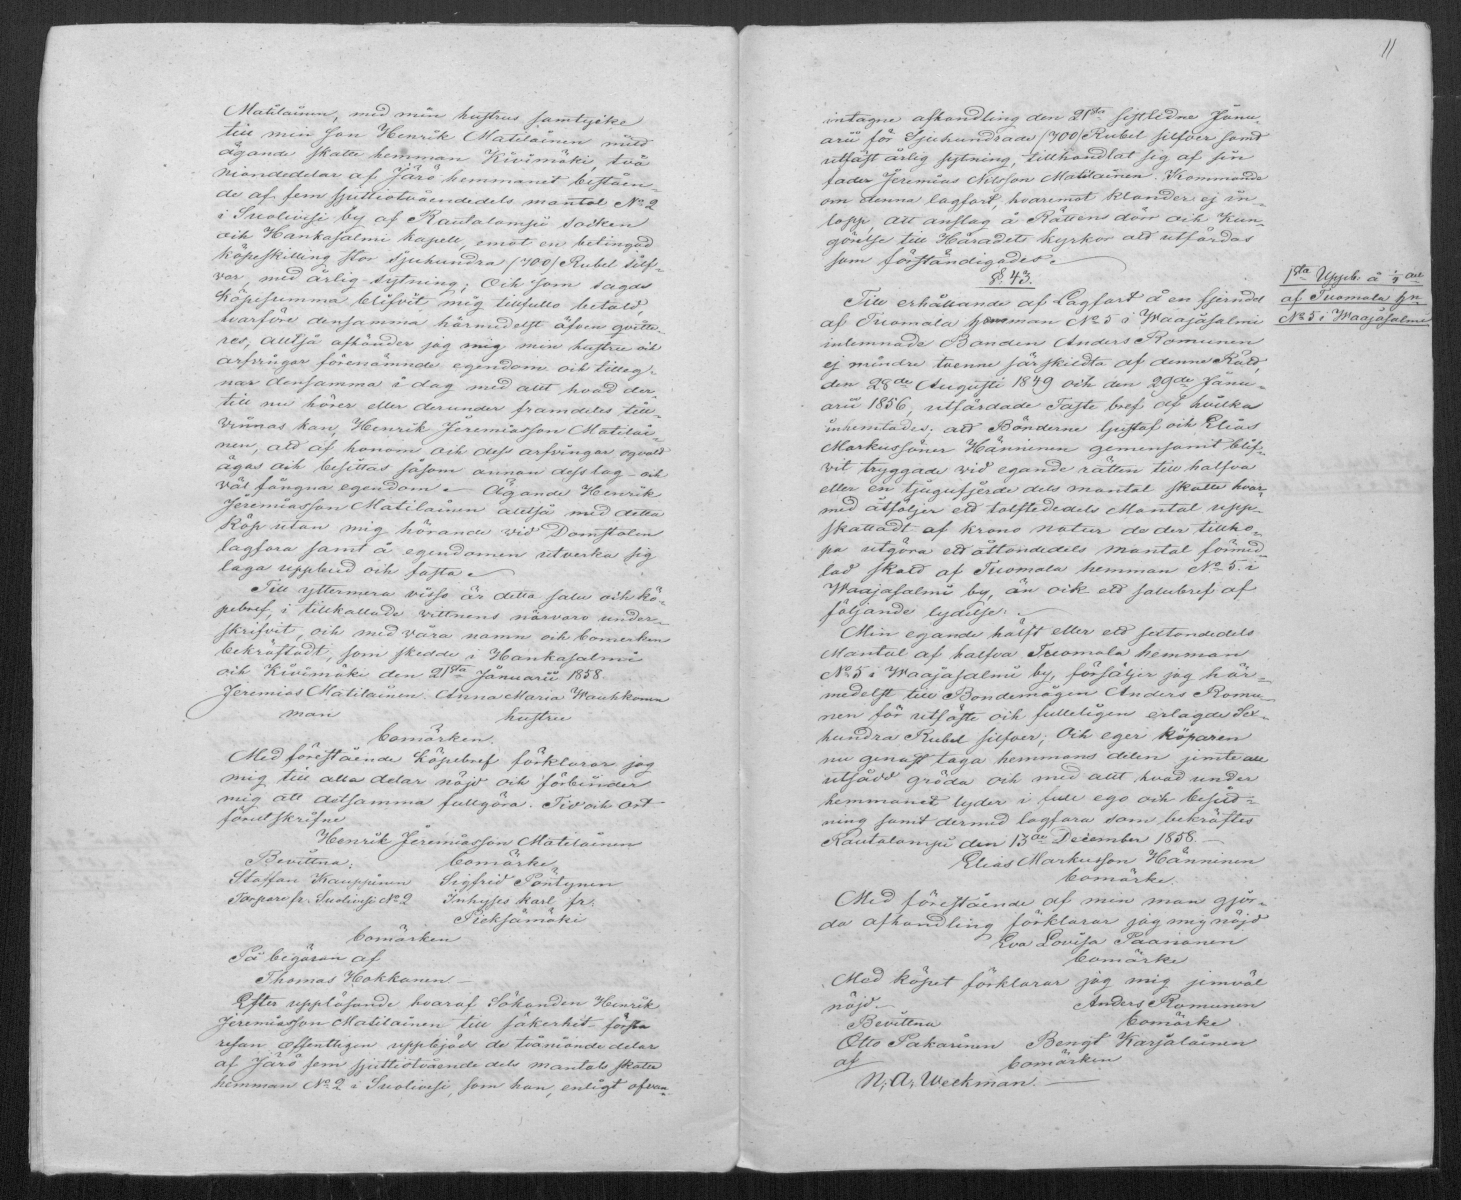 Matilainen, med min hustrus samtycke
till min son Henrik Matilainen mitt
ägande skatte hemman Kivimäki, två
niondedelar af Järö hemmanet beståen-
de af fem sjuttiotvåendedels mantal No 2
i Suolivesi by af Rautalampi socken
och Hankasalmi kapell, emot en betingad
köpeskilling stor Sjuhundra (700) Rubel silf-
ver, med årlig sytning; Och som sagde
Köpesumma blifvit mig tillfullo betald,
hvarföre densamma härmedelst äfven qvitte-
res, alltså afhänder jag mig min hustru och
arfvingar förenämnde egendom och tilleg-
nar densamma i dag med allt hvad der
till nu hörer eller derunder framdeles till-
vinnas kan, Henrik Jeremiasson Matilai-
nen, att af honom och dess arfvingar oqvald
ägas och besittas såsom annan dess lag- och
väl fångna egendom. Ägande Henrik
Jeremiasson Matilainen alltså med detta
Köp utan mig hörande vid Domstolen
lagfara samt å egendomen utverka sig
laga uppbud och fasta.
Till yttermera visso är detta salu och kö-
pebref, i tillkallade vittnens närvaro under-
skrifvit, och med våra namn och bomerken
bekräftadt, som skedde i Hankasalmi
och Kivimäki den 21sta Januarii 1858.
Jeremias Matilainen Anna Maria Wauhkonen
man hustru
bomärken.
Med föreståendе Köpebref förklarar jag
mig till alla delar nöjd och förbinder
mig att detsamma fullgöra. Tid och ort
förutskrifne
Henrik Jeremiasson Matilainen
Bevittna: bomärke
Staffan Kauppinen Sigfrid Pöntynen
Torpare fr. Suolivesi No 2 Inhyses karl fr.
Pieksämäki
bomärken
På begäran af
Thomas Hokkanen
Efter uppläsande hvaraf Sökanden Henrik
Jeremiasson Matilainen till säkerhet första
resan offentligen uppbjöds de tvåniondedelar
af Järö fem sjuttiotvåendedels mantals skatte
hemman No 2 i Suolivesi, som han, enligt ofvan
11
intagne afhandling den 21sta sistledne Janu-
arii för Sjuhundrade (700) Rubel silfver samt
utfäst årlig sytning, tillhandlat sig af sin
fader Jeremias Nilsson Matilainen. Kommande
om denna lagfart, hvaremot klander ej in-
lopp, att anslag å Rättens dörr och Kun-
görelse till Häradets kyrkor att utfärdas
som förständigades.
§ 43.
1sta Uppb. å 1/4 del
af Tuomala hn
No 5 i Waajasalmi
Till erhållande af Lagfart å en fjerndel
af Tuomala hemman No 5 i Waajasalmi
inlemnade Bonden Anders Romunen
ej mindre tvenne särskildta af denne Rätt,
den 28de Augusti 1849 och den 29de Janu-
arii 1856, utfärdade Faste bref af hvilka
inhemtades: att Bönderne Gustaf och Elias
Markussöner Hänninen gemensamt blif-
vit tryggade vid egande rätten till halfva
eller en tjugufjerdedels mantal skatte hvar-
med åtföljer ett tolftedels Mantal upp-
skattadt af krono natur de der tillho-
pa utgöra ett åttondedels mantal förmed-
lad skatt af Tuomala hemman No 5 i
Waajasalmi by, än ock ett salubref af
följande lydelse:
Min egande hälft eller ett sextondedels
Mantal af halfva Tuomala hemman
No 5 i Waajasalmi by, försäljer jag här-
medelst till Bondemågen Anders Romu-
nen för utfäste och fulleligen erlagde Sex-
hundra Rubel silfver; Och eger köparen
nu genast taga hemmans delen jemte all
utsådd gröda och med allt hvad under
hemmanet lyder i full ego och besitt-
ning samt dermed lagfara som bekräftes
Rautalampi den 13de December 1858.
Elias Markusson Hänninen
bomärke.
Med förestående af min man gjor-
da afhandling förklarar jag mig nöjd
Eva Lovisa Paananen
bomärke
Med köpet förklarar jag mig jemväl
nöjd. Anders Romunen
Bevittna bomärke
Otto Pakarinen Bengt Karjalainen
af bomärken
N. A. Weckman.